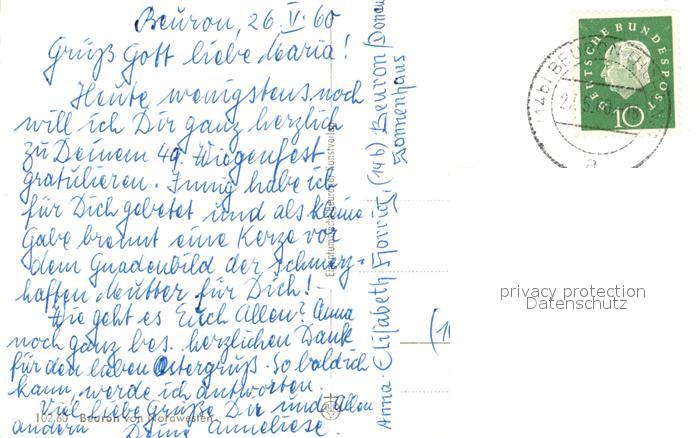 Beuron, 26. V. 60
Grüß Gott liebe Maria!
Heute wenigstens noch
will ich Dir ganz herzlich
zu Deinem 49. Wiegenfest
gratulieren. Innig habe ich
für Dich gebetet und als kleine
Gabe brennt eine Kerze vor
dem Gnadenbild der Schmerz=
haften Mutter für Dich! -
Wie geht es Euch Allen? Anna
noch ganz bes. herzlichen Dank
für den lieben Ostergruß. So bald ich
kann, werde ich antworten.
Viel liebe Grüße Dir und allen
andern Deine Anneliese.
Anna Elisabeth (14b) Beuron/Donau
Sonnenhaus
102/60 Beuron von Nordwesten
Beuroner Kunstverlag
DEUTSCHE BUNDESPOST
10
(14b) BEURON
a
privacy protection
Datenschutz